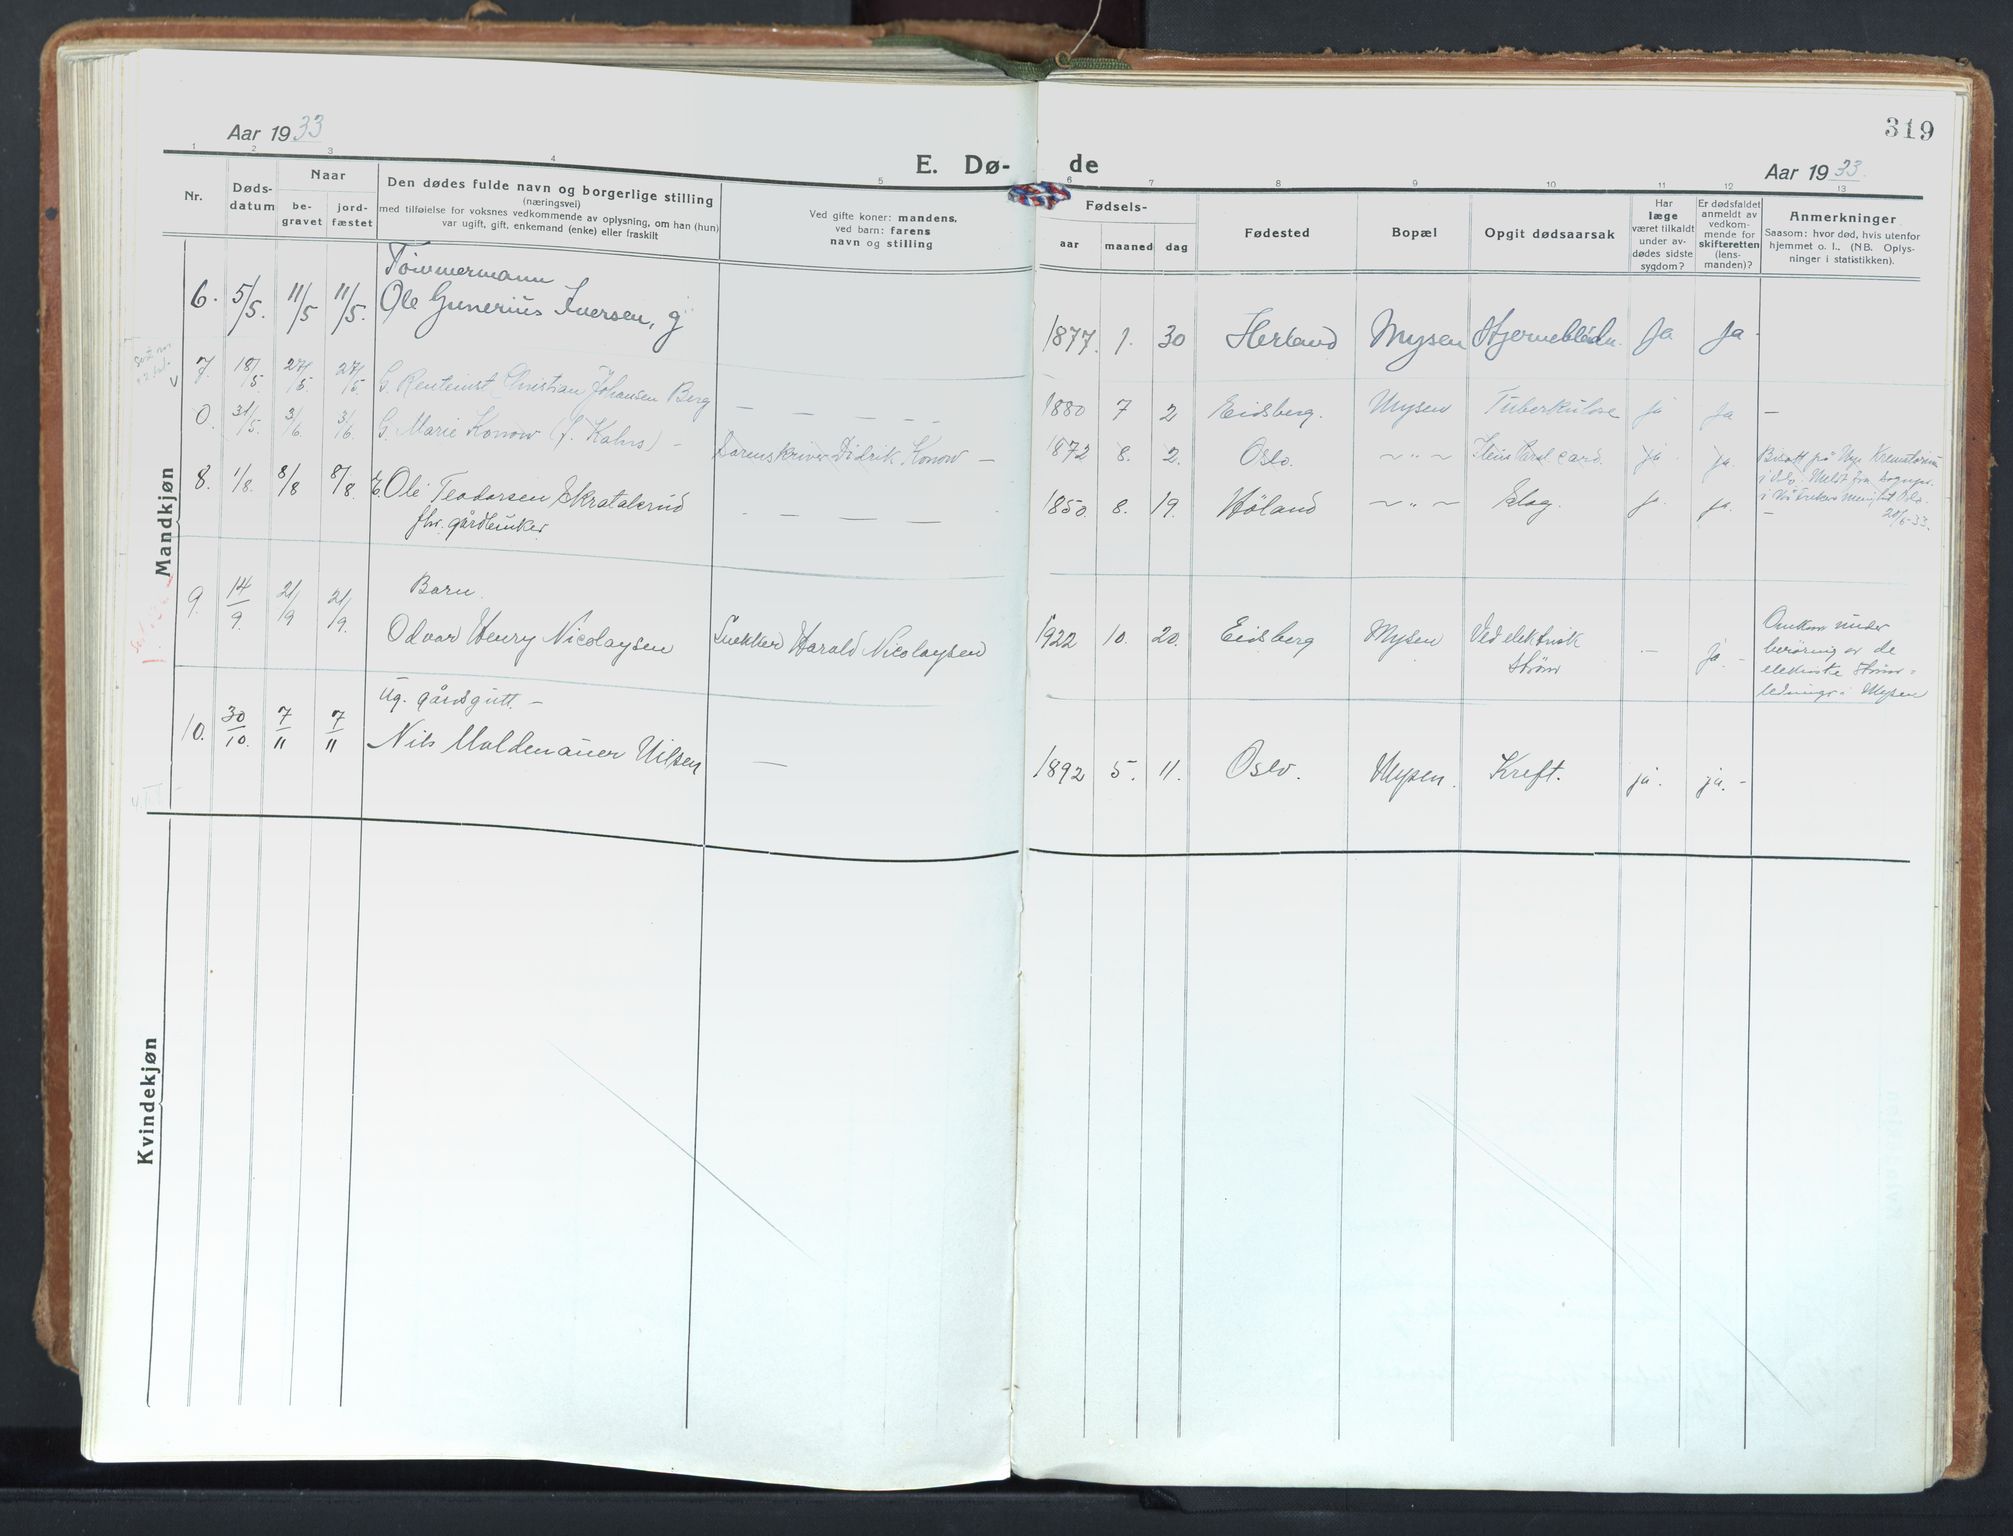 Aar 1933
319
E. Dø-
de
Aar 1933.
1 2 3 4 5 6 7 8 9 10 11 12 13
Nr.
Døds-
datum
Naar
be-
gravet
jord-
fæstet
Den dødes fulde navn og borgerlige stilling
(næringsvei)
med tilføielse for voksnes vedkommende av oplysning, om han (hun)
var ugift, gift, enkemand (enke) eller fraskilt
Ved gifte koner: mandens,
ved barn: farens
navn og stilling
Fødsels-
aar
maaned
dag
Fødested
Bopæl
Opgit dødsaarsak
Har
læge
været tilkaldt
under av-
dødes sidste
sygdom?
Er dødsfaldet
anmeldt av
vedkom-
mende for
skifteretten
(lens-
manden)?
Anmerkninger
Saasom: hvor død, hvis utenfor
hjemmet o. l., (NB. Oplys-
ninger i statistikken).
Mandkjøn
Tømmermann
6. 5/5. 11/5 11/5. Ole Gunerius Iversen, g 1877. 1. 30 Herland Mysen Ja Ja
7. 18/5 27/5 27/5. G. Christian Johansen Berg — — — — 1880 7 2 Eidsberg. Mysen Tuberkulose ja ja —
0. 31/5. 3/6. 3/6. G. Marie Konow (f. Kahrs) — Sorenskriver Didrik Konow — 1872 8. 2. Oslo. ~ " ~ ja. ja.
8. 1/8. 8/8 8/8. E. Ole Teodorsen Skratalsrud — — — 1850. 8. 19. Høland ~ " ~ Slag. ja. ja. —
fhv. gårdbruker
20/6-33.
Barn.
9. 14/9. 21/9 21/9. Odvar Henry Nicolaysen Snekker Harald Nicolaysen 1922 10. 20. Eidsberg Mysen Ved elektrisk
strøm — ja. —
Omkom under
berøring av de
elektriske strøm-
ledninger i Mysen
Ug. gårdsgutt. —
10. 30/10. 7/11 7/11 Nils Valdemar Nilsen — 1892 5. 11. Oslo. Mysen. Kreft. ja. ja. —
Kvindekjøn